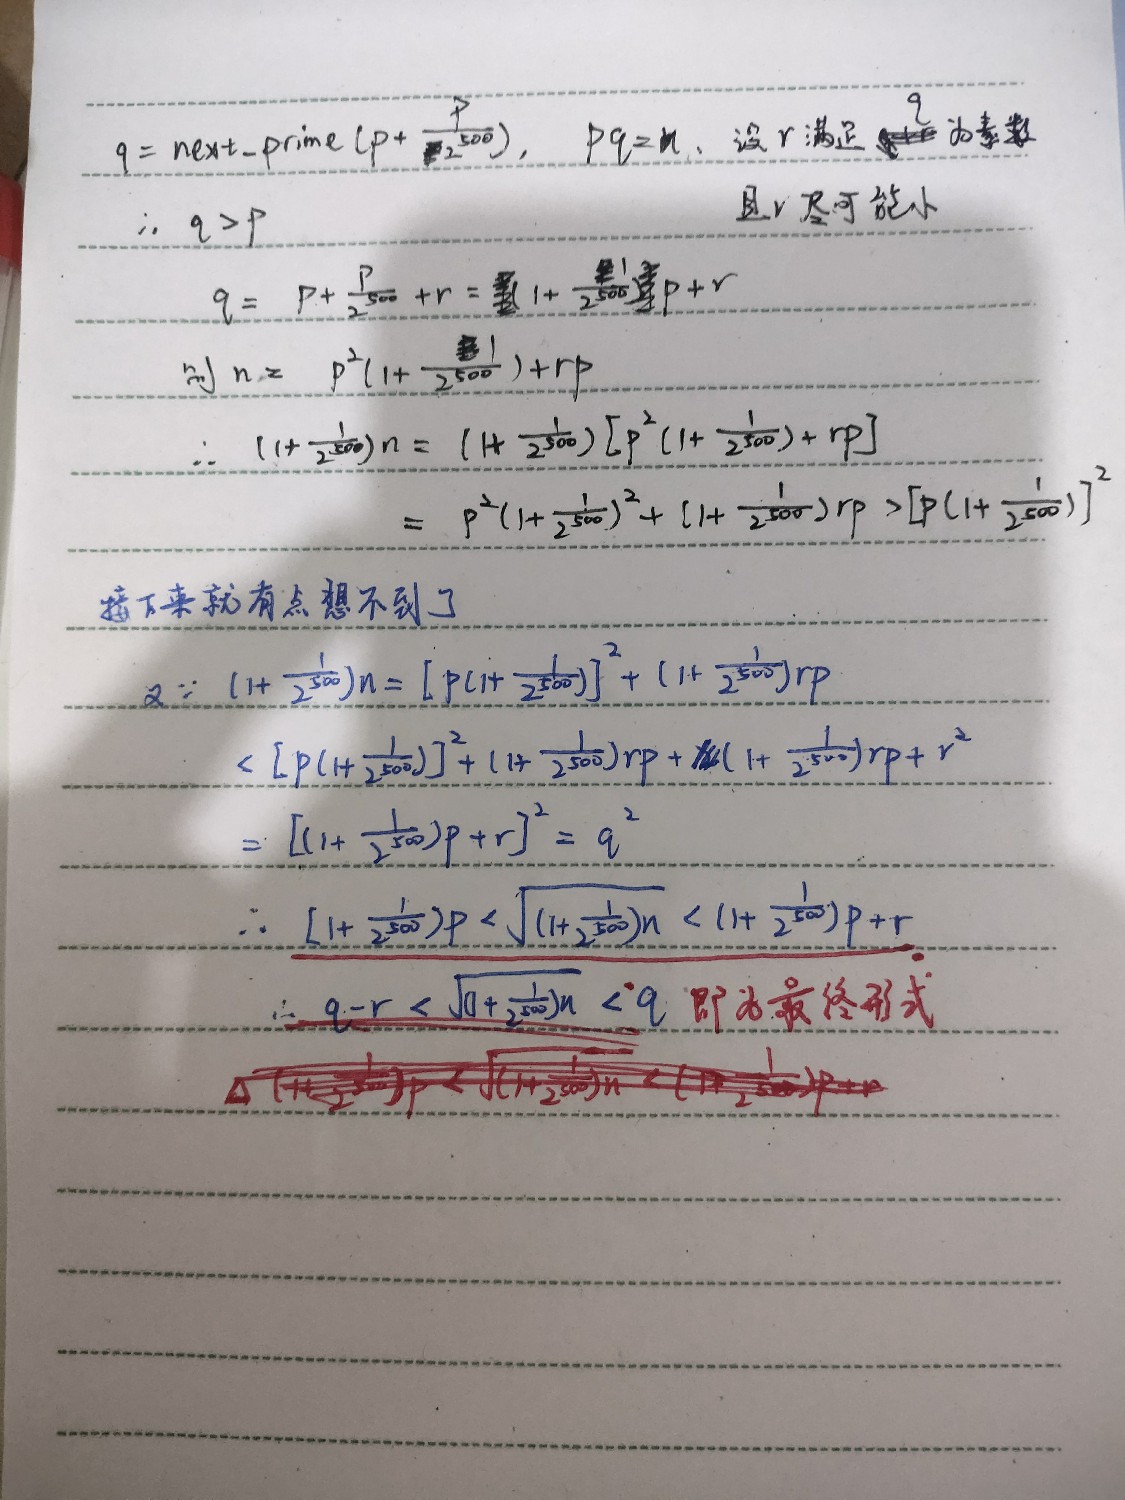 q = next_prime(p + p/2^500), pq = n、设 r 满足 q 为素数
且 r 尽可能小
∴ q > p
q = p + p/2^500 + r = (1 + 1/2^500)p + r
则 n = p²(1 + 1/2^500) + rp
∴ (1 + 1/2^500)n = (1 + 1/2^500)[p²(1 + 1/2^500) + rp]
= p²(1 + 1/2^500)² + (1 + 1/2^500)rp > [p(1 + 1/2^500)]²
接下来就有点想不到了
又∵ (1 + 1/2^500)n = [p(1 + 1/2^500)]² + (1 + 1/2^500)rp
< [p(1 + 1/2^500)]² + (1 + 1/2^500)rp + (1 + 1/2^500)rp + r²
= [(1 + 1/2^500)p + r]² = q²
∴ (1 + 1/2^500)p < √((1 + 1/2^500)n) < (1 + 1/2^500)p + r
∴ q - r < √((1 + 1/2^500)n) < q 即为最终形式
△ (1 + 1/2^500)p < √((1 + 1/2^500)n) < (1 + 1/2^500)p + r